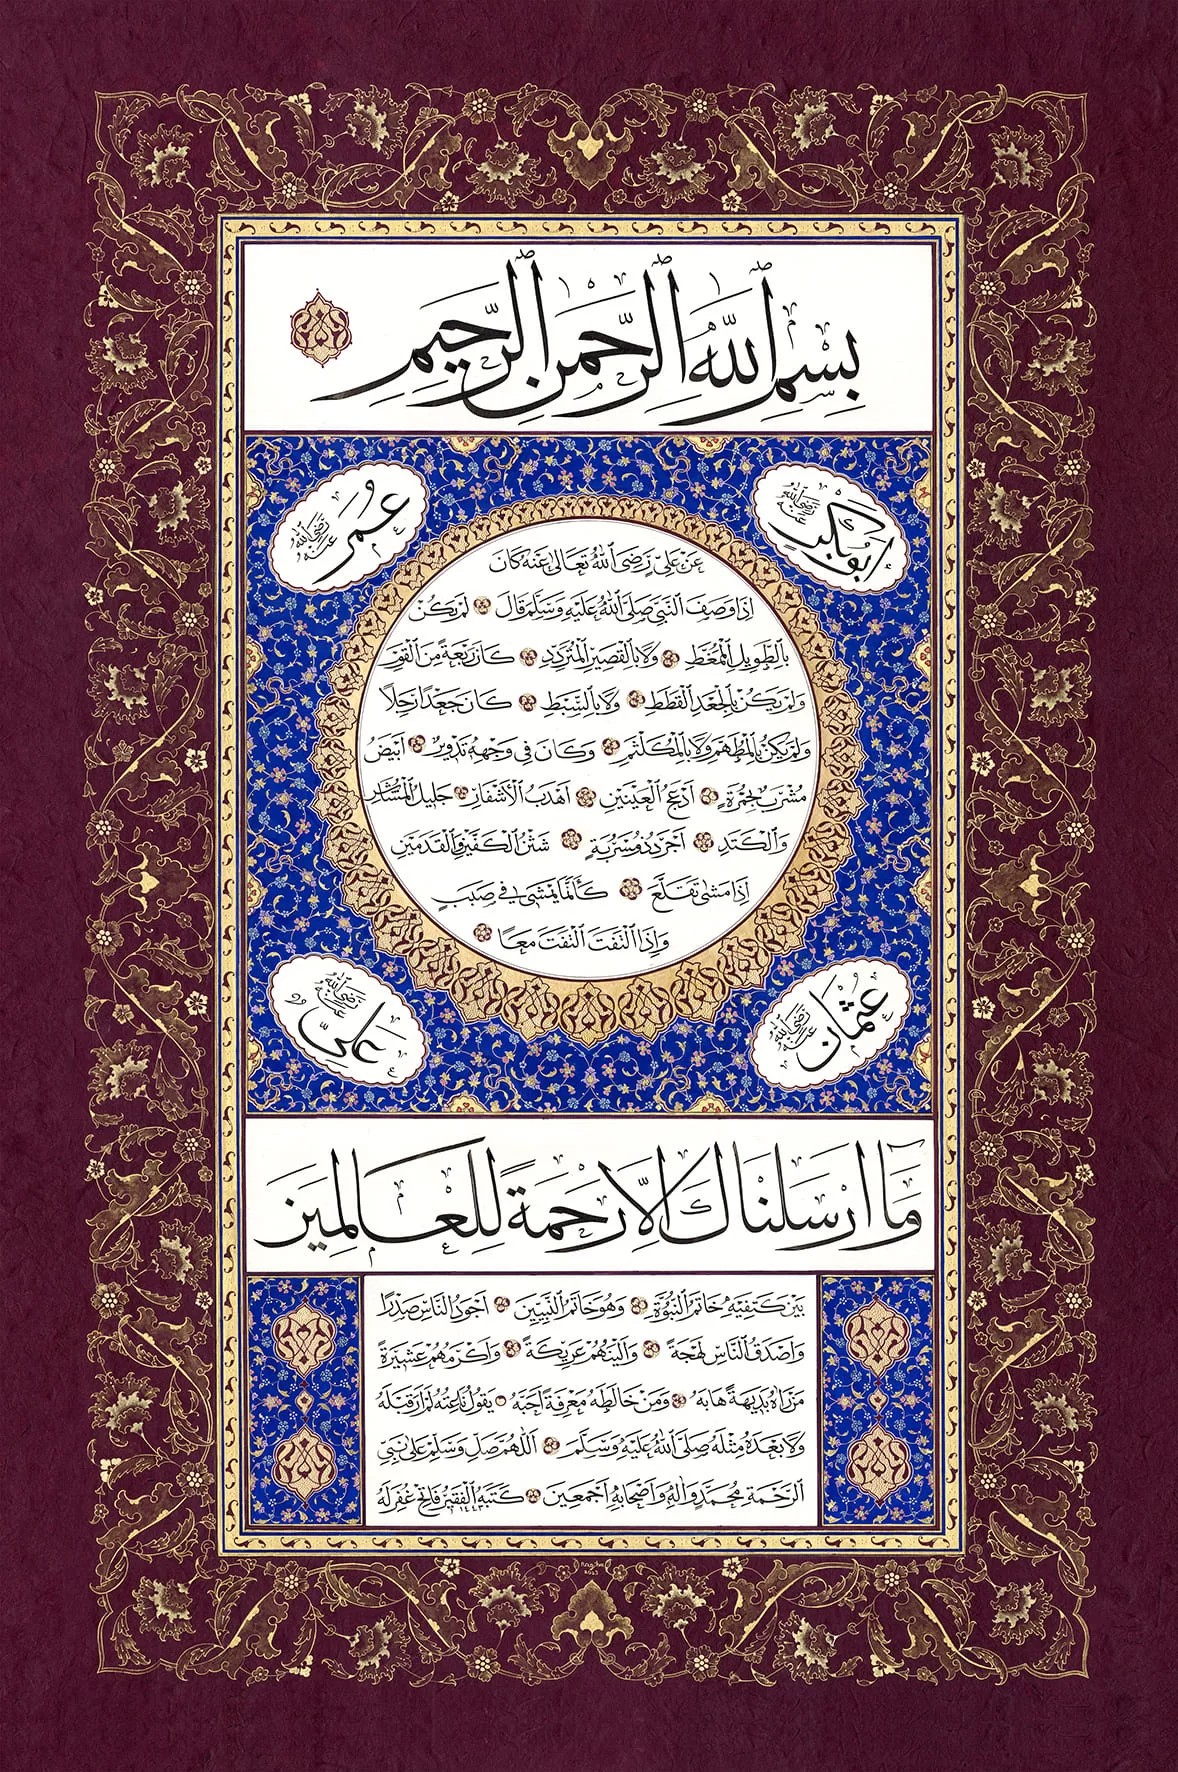 بِسْمِ اللّٰهِ الرَّحْمٰنِ الرَّحِيمِ
ابوبكر رضي الله عنه
عمر رضي الله عنه
عن علي رضى الله تعالى عنه كان
اذا وصف النبي صلى الله عليه وسلم قال لم يكن
بالطويل الممغط ولا بالقصير المتردد كان ربعة من القوم
ولم يكن بالجعد القطط ولا بالسبط كان جعدا رجلا
ولم يكن بالمطهم ولا بالمكلثم وكان في وجهه تدوير ابيض
مشرب بحمرة ادعج العينين اهدب الاشفار جليل المشاش
والكتد اجرد ذو مسربة شثن الكفين والقدمين
اذا مشى تقلع كأنما يمشي في صبب
واذا التفت التفت معا
عثمان رضي الله عنه
علي رضي الله عنه
مَا ارسلناك الا رحمة للعالمين
بين كتفيه خاتم النبوة وهو خاتم النبيين اجود الناس صدرا
واصدق الناس لهجة والينهم عريكة واكرمهم عشيرة
من راه بديهة هابه ومن خالطه معرفة احبه يقول ناعته لم ار قبله
ولا بعده مثله صلى الله عليه وسلم اللهم صل وسلم على نبي
الرحمة محمد واله واصحابه اجمعين كتبه الفقير فاتح غفر له